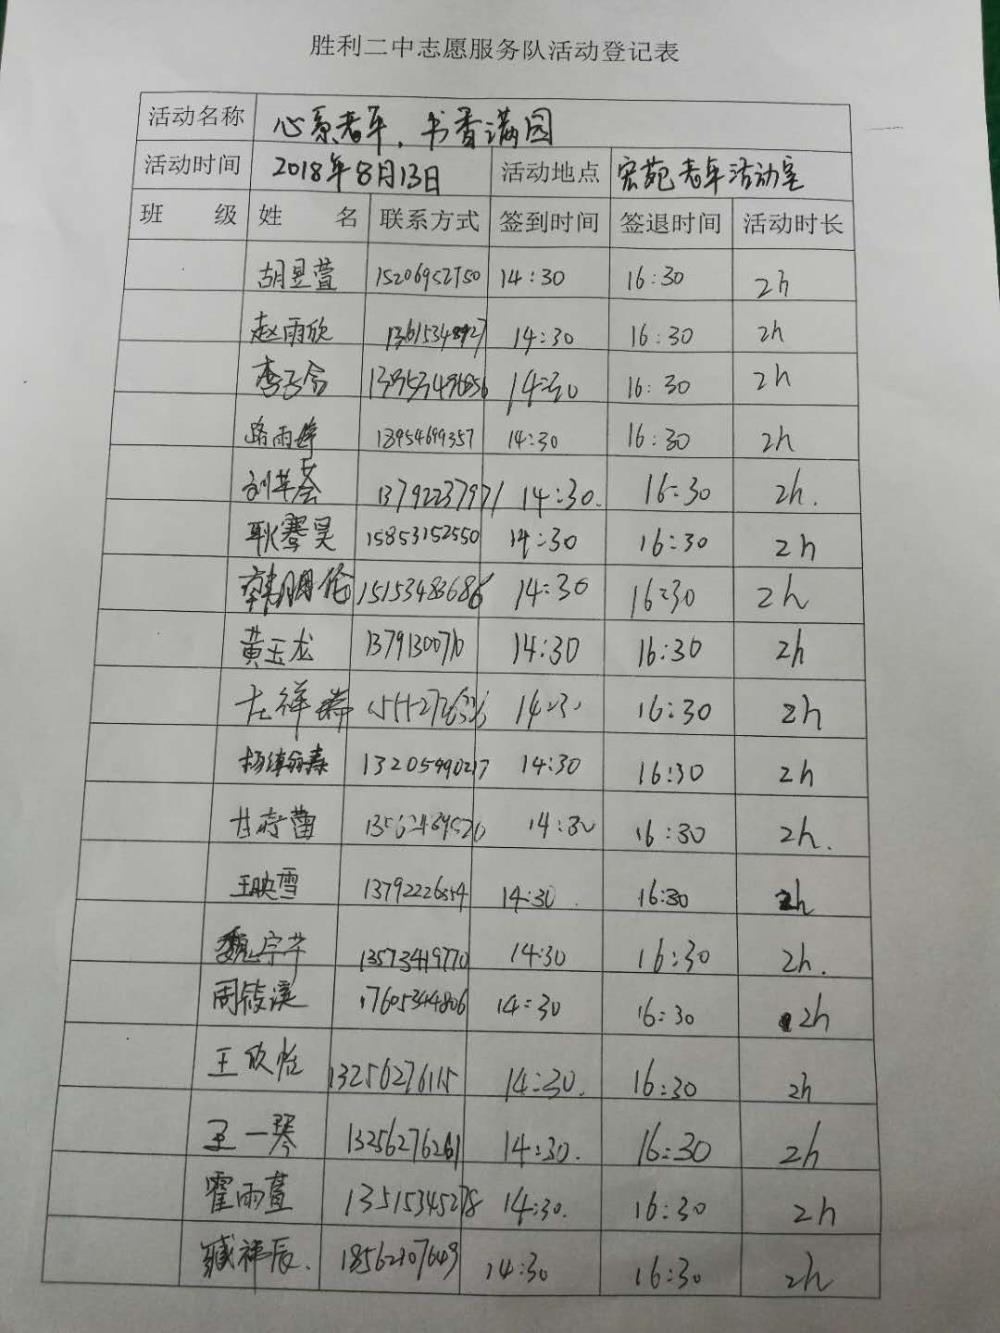 胜利二中志愿服务队活动登记表
活动名称 心系老年，书香满园
活动时间 2018年8月13日 活动地点 宏苑老年活动室
班 级 姓 名 联系方式 签到时间 签退时间 活动时长
胡昱萱 15206952750 14:30 16:30 2h
赵雨欣 14:30 16:30 2h
李子含 14:30 16:30 2h
路雨婷 13954699357 14:30 16:30 2h
刘芊荟 13792237971 14:30. 16:30 2h.
耿骞昊 15853152550 14:30 16:30 2h
韩鹏伦 15153483686 14:30 16:30 2h
黄玉龙 14:30 16:30 2h
祥 14:30 16:30 2h
杨 13205490217 14:30 16:30 2h
甘 蕾 14:30 16:30 2h.
王映雪 14:30. 16:30 2h
魏宁芊 13573419770 14:30 16:30 2h.
周筱溪 17605344806 14:30 16:30 2h
王欣怡 13256276115 14:30. 16:30 2h
王一琴 13256276261 14:30. 16:30 2h
霍雨萱 13515345278 14:30. 16:30 2h
臧祥辰. 18562107649 14:30 16:30 2h